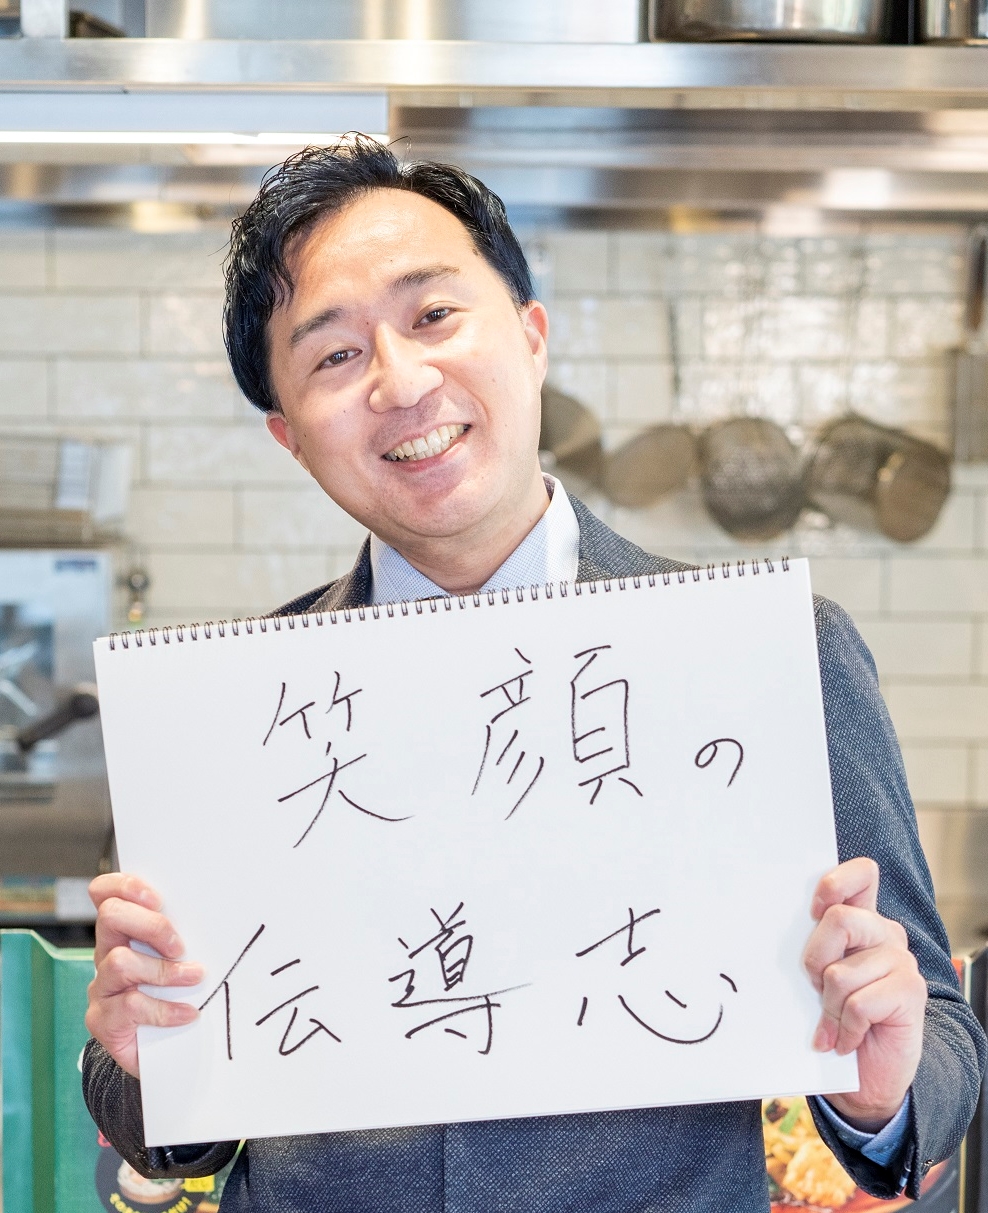 笑顔の
伝導志